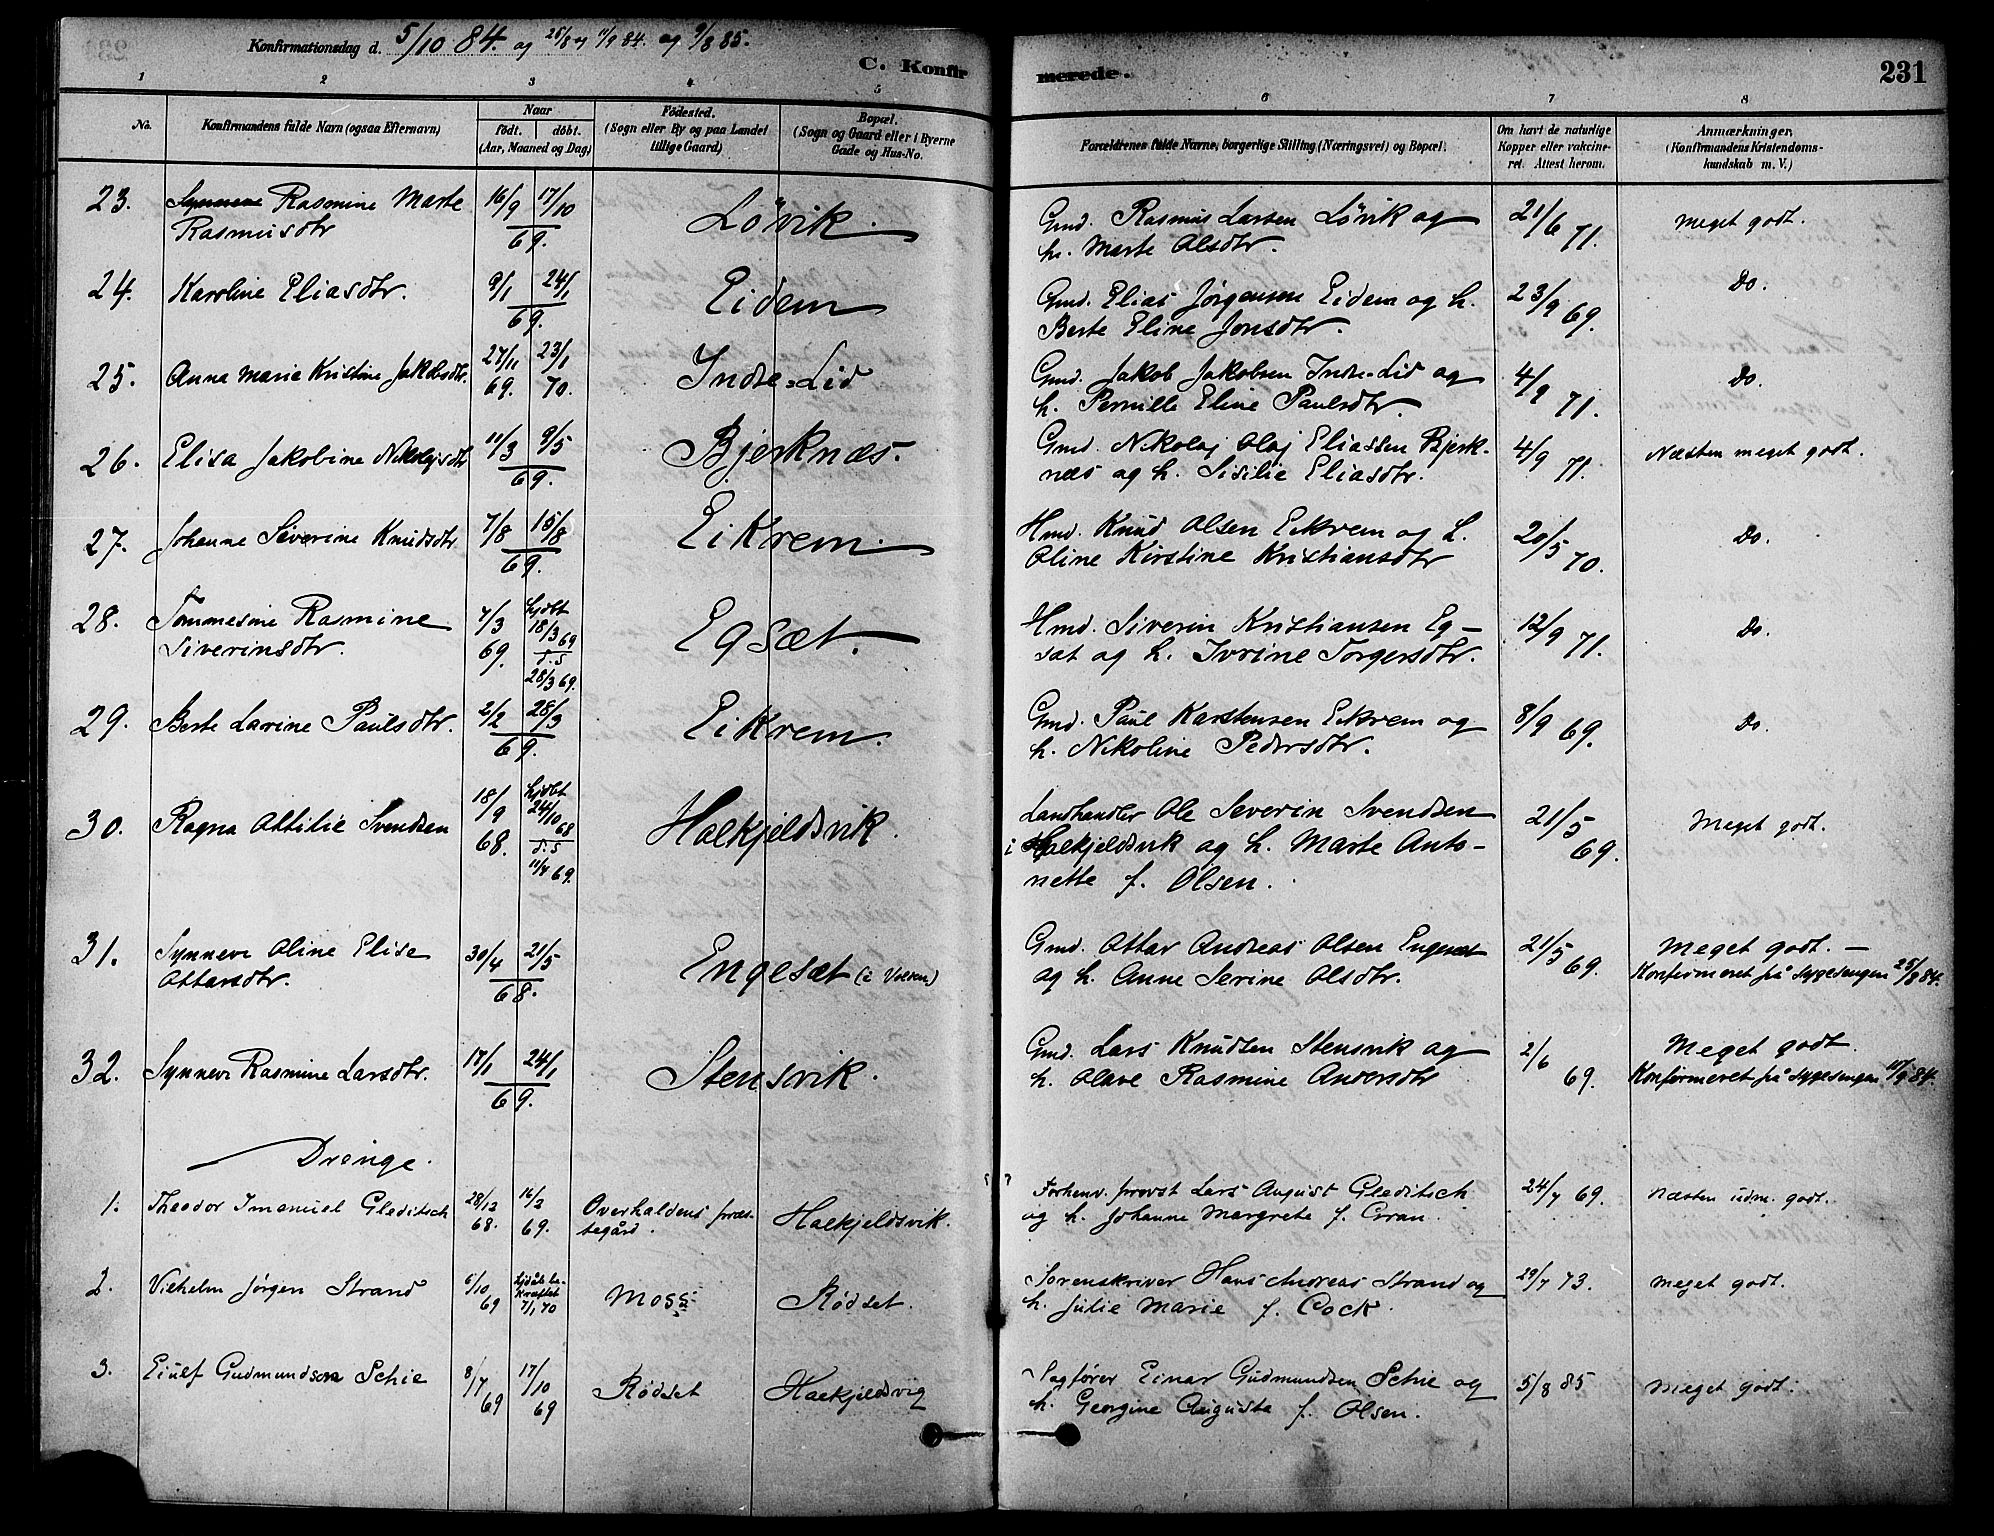 Konfirmationsdag d. 5/10 84. og 25/8 og 11/9 84. og 9/8 85.
C. Konfirmerede.
231
1 2 3 4 5 6 7 8
No.
Konfirmandens fulde Navn (ogsaa Efternavn)
Naar
født. døbt.
(Aar, Maaned og Dag)
Fødested.
(Sogn eller By og paa Landet
tillige Gaard)
Bopæl.
(Sogn og Gaard eller i Byerne
Gade og Hus-No.
Forældrenes fulde Navne, borgerlige Stilling (Næringsvei) og Bopæl.
Om havt de naturlige
Kopper eller vakcine-
ret. Attest herom.
Anmærkninger,
(Konfirmandens Kristendoms-
kundskab m. V.)
23. Synneve Rasmine Marte 16/9 17/10 Lövik. Gmd. Rasmus Larsen Lövik og 21/6 71. Meget godt.
Rasmusdtr 69. h. Marte Olsdtr.
24. Karoline Eliasdtr. 9/1 24/1 Eidem Gmd. Elias Jørgensen Eidem og h. 23/9 69. Do.
69. Berte Eline Jonsdtr.
25. Anna Marie Kristine Jakobsdtr. 27/11 23/1 Indre-Lid Gmd. Jakob Jakobsen Indre-Lid og 4/9 71. Do.
69. 70. h. Pernille Eline Paulsdtr.
26. Elisa Jakobine Nikolajsdtr 11/3 9/5 Bjerknæs. Gmd. Nikolaj Olaj Eliassen Bjerk- 4/9 71. Næsten meget godt.
69. næs og h. Sisilie Eliasdtr.
27. Johanne Severine Knudsdtr 7/8 15/8 Eikrem. Hmd. Knud Olsen Eikrem og h. 20/5 70. Do.
69. Oline Kirstine Kristiansdtr
28. Tommesine Rasmine 7/3 hjdbt Egsæt. Hmd. Siverin Kristiansen Eg- 12/9 71. Do.
Siverinsdtr. 69. 18/3 69 sæt og h. Ivrine Torgersdtr.
28/3 69.
29. Berte Lavine Paulsdtr. 2/2 28/3 Eikrem. Gmd. Paul Karstensen Eikrem og 8/9 69. Do.
69. h. Nikoline Pedersdtr.
30. Ragna Ottilie Svendsen 18/9 hjdbt Halkjeldsvik. Landhandler Ole Severin Svendsen 21/5 69. Meget godt.
68. 24/10 68 i Halkjeldsvik og h. Marte Anto-
11/4 69. nette f. Olsen.
31. Synnevi Oline Elise 30/4 21/5 Engesæt (i Volden) Gmd. Ottar Andreas Olsen Engeset 21/5 69. Meget godt. –
Ottarsdtr. 68. og h. Anne Serine Olsdtr. Konfirmeret på sygesengen 25/8 84.
32. Synnevi Rasmine Larsdtr. 17/1 24/1 Stensvik. Gmd. Lars Knudsen Stensvik og 2/6 69. Meget godt.
69. h. Olave Rasmine Andersdtr Konfirmeret på sygesengen 11/9 84.
Drenge.
1. Theodor Imanuel Gleditsch 28/12 16/2 Overhaldens præs- Halkjeldsvik. Forhenv. provst Lars August Gleditsch 24/7 69. Næsten udm. godt.
68. 69. tegård. og h. Johanne Margrete f. Gran.
2. Vilhelm Jørgen Strand 6/10 69 Hjdåb be- Moss Rødset. Sorenskriver Hans Andreas Strand og 29/7 73. Meget godt.
kræftet 7/1 70 h. Julie Marie f. Cock.
3. Eiulf Gudmundson Schie 8/7 69 17/10 69 Rødset Halkjeldsvig Sagfører Einar Gudmundsen Schie og 5/8 85 Meget godt.
h. Georgine Augusta f. Olsen.